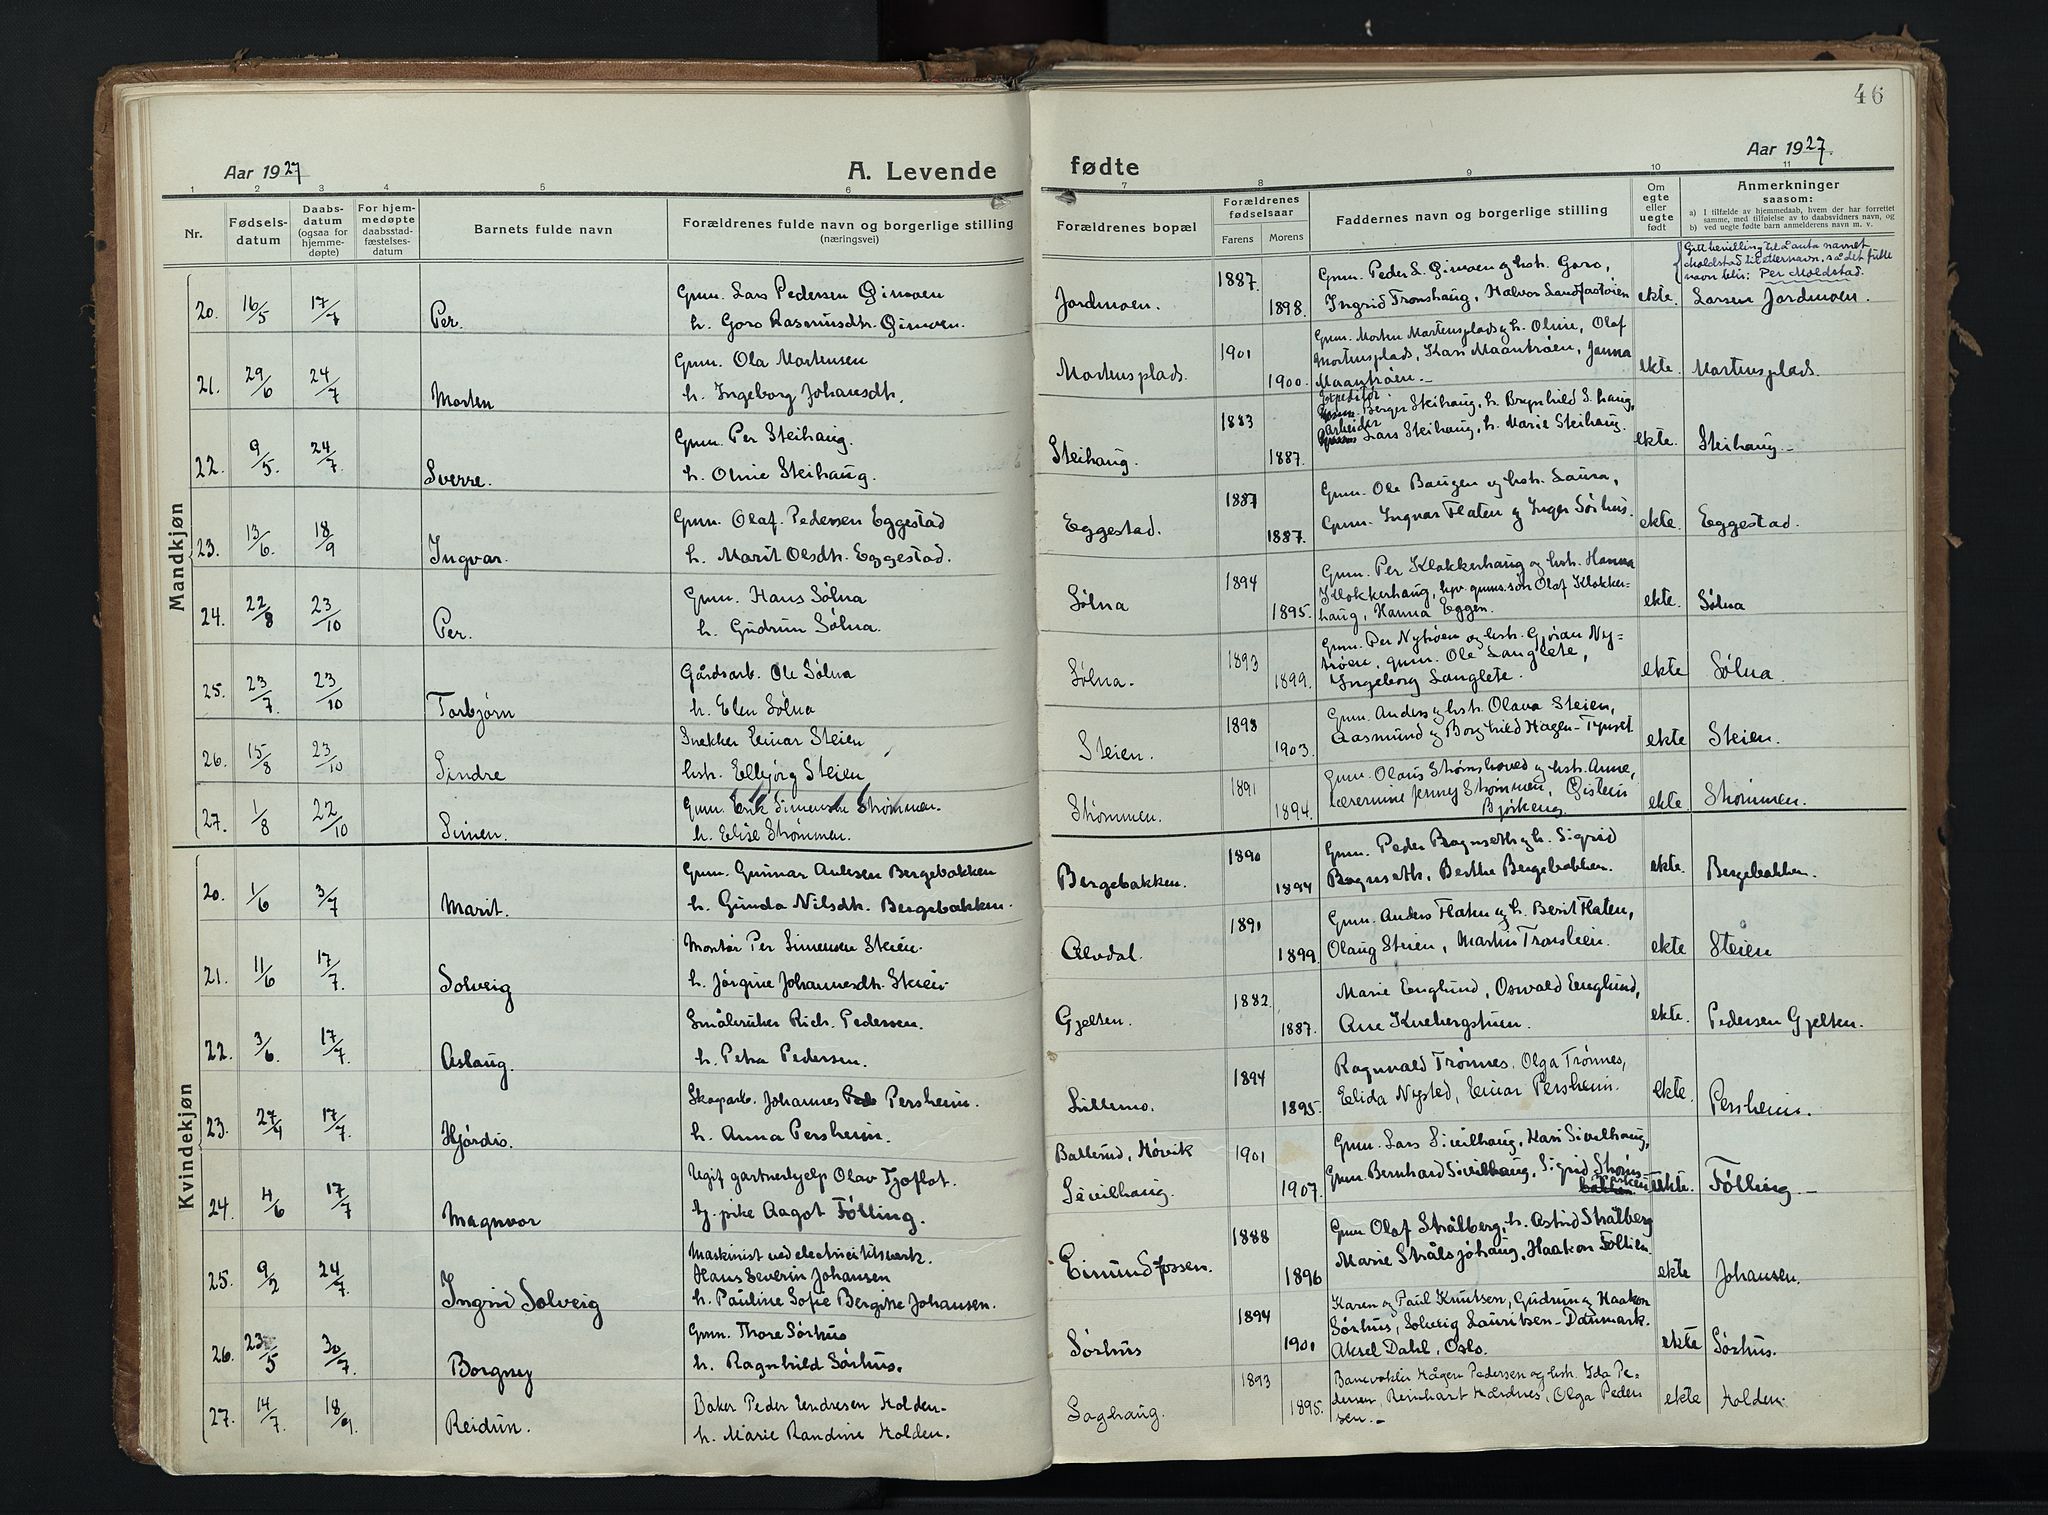 46
Aar 1927
A. Levende
fødte
Aar 1927.
1 2 3 4 5 6
7 8 9 10 11
Nr.
Fødsels-
datum
Daabs-
datum
(ogsaa for
hjemme-
døpte)
For hjem-
medøpte
daabsstad-
fæstelses-
datum
Barnets fulde navn
Forældrenes fulde navn og borgerlige stilling
(næringsvei)
Forældrenes bopæl
Forældrenes
fødselsaar
Farens
Morens
Faddernes navn og borgerlige stilling
Om
egte
eller
uegte
født
Anmerkninger
saasom:
a) I tilfælde av hjemmedaab, hvem der har forrettet
samme, med tilføielse av to daabsvidners navn, og
b) ved uegte fødte barn anmelderens navn m. v.
Mandkjøn
20. 16/5 17/7 Per.
Gmn. Lars Pedersen Øimoen
h. Goro Rasmusdtr. Øimoen.
Jordmoen. 1887. 1898.
Gmn. Peder L. Øimoen og hstr. Goro,
Ingrid Tronshaug, Halvor Sandfastøien
ekte.
Gitt bevilling til å anta navnet
Moldstad til etternavn, så det fulle
navn blir: Per Moldstad.
Larsen Jordmoen.
21. 29/6 24/7 Morten
Gmn. Ola Mortensen
h. Ingeborg Johansdtr.
Mortensplads. 1901 1900.
Gmn. Morten Mortensplads og h. Oline, Olaf
Mortensplads, Kari Maantrøen, Janna
Maantrøen.
ekte. Mortensplads.
22. 9/5. 24/7. Sverre.
Gmn. Per Steihaug.
h. Oline Steihaug.
Steihaug. 1883 1887.
Expeditør
Berger Steihaug, h. Brynhild S.haug,
arbeider
Lars Steihaug, h. Marie Steihaug.
ekte. Steihaug
23. 13/6. 18/9 Ingvar.
Gmn. Olaf Pedersen Eggestad
h. Marit Olsdtr. Eggestad.
Eggestad. 1887 1887.
Gmn. Ole Baugen og hstr. Laura,
Gmn. Ingvar Flaten og Inger Sørhus.
ekte. Eggestad.
24. 22/8 23/10 Per.
Gmn. Hans Sølna
h. Gudrun Sølna.
Sølna 1894 1895.
Gmn. Per Klokkerhaug og hstr. Hanna
Klokkerhaug, hpv. gmns.søn Olaf Klokker-
haug, Hanna Eggen.
ekte. Sølna
25. 23/7. 23/10 Torbjørn
Gårdsarb. Ole Sølna
h. Elen Sølna
Sølna. 1893 1899.
Gmn. Per Nytrøen og hstr. Gjøran Ny-
trøen, gmn. Ole Langlete,
Ingeborg Langlete.
ekte Sølna.
26. 15/8 23/10 Sindre
Snekker Einar Steien
hstr. Elbjørg Steien
Steien. 1898 1903.
Gmn. Anders og hstr. Olava Steien,
Aasmund og Borghild Hagen-Tynset
ekte Steien.
27. 1/8 22/10 Simen.
Gmn. Erik Simensen Strømmen.
h. Elise Strømmen.
Strømmen. 1891 1894.
Gmn. Olaus Strømshoved og hstr. Anne,
lærerinne Jenny Strømmen, Øistein
Bjørkeng.
ekte Strømmen.
Kvindekjøn
20. 1/6 3/7 Marit.
Gmn. Gunnar Arnesen Bergebakken
h. Gunda Nilsdtr. Bergebakken.
Bergebakken. 1890 1894
Gmn. Peder Bagnseth og h. Sigrid
Bagnseth, Berthe Bergebakken.
ekte. Bergebakken.
21. 11/6 17/7. Solveig
Montør Per Simensen Steien.
h. Jørgine Johannesdtr. Steien
Alvdal. 1891 1899.
Gmn. Anders Flaten og h. Berit Flaten,
Olaug Steien, Martin Tronslien.
ekte Steien
22. 3/6 17/7. Aslaug.
Småbruker Rich. Pedersen.
h. Petra Pedersen.
Gjelten. 1882. 1887.
Marie Englund, Oswald Englund,
Ane Knebergstuen.
ekte. Pedersen Gjelten.
23. 27/4 17/7. Hjørdis.
Skogarb. Johannes Persheim.
h. Anna Persheim.
Lillemo. 1894 1895.
Ragnvald Trønnes, Olga Trønnes,
Elida Nysted, Einar Persheim.
ekte. Persheim.
24. 4/6 17/7 Magnvor
Ugift gartnerhjelp Olav Tjoflot.
tj.pike Aagot Følling.
Ballerud, Høvik
Sivilhaug. 1901 1907.
Gmn. Lars Sivilhaug, Kari Sivilhaug,
Gmn. Bernhard Sivilhaug, Sigrid Strøms-
bakken
uekte. Følling
25. 9/2 24/7. Ingrid Solveig
Maskinist ved electricitetsverk.
Hans Severin Johansen
h. Pauline Sofie Bergitte Johansen.
Eimundfossen. 1888 1896
Gmn Olaf Strålberg, h. Astrid Strålberg
Marie Strålsjøhaug, Haakon Follien.
ekte Johansen.
26. 23/5 30/7. Borgny
Gmn. Thore Sørhus
h. Ragnhild Sørhus.
Sørhus 1894 1901
Karen og Paul Knutsen, Gudrun og Haakon
Sørhus, Solveig Lauritsen-Danmark.
Aksel Dahl, Oslo.
ekte Sørhus.
27. 14/7. 18/9. Reidun.
Baker Peder Endresen Holden
h. Marie Randine Holden.
Saghaug. 1893 1895.
Banevokter Hågen Pedersen og hstr. Ida Pe-
dersen, Reinhart Hårdnes, Olga Peder
sen.
ekte Holden.